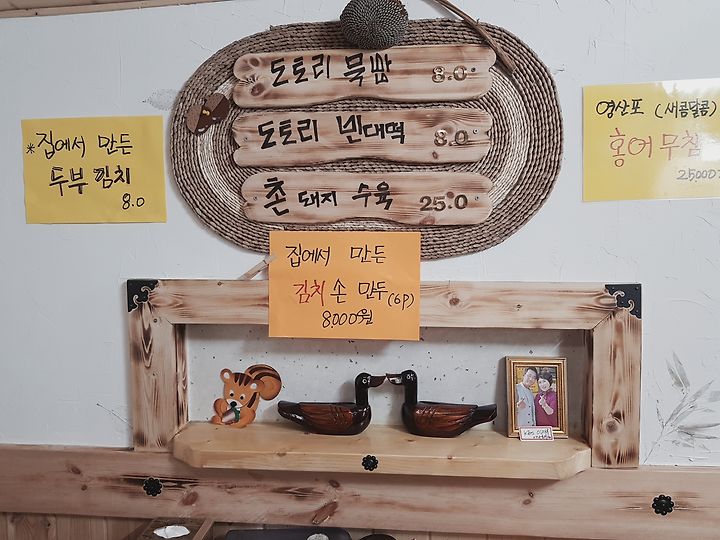 도토리 묵밥 8.0
도토리 빈대떡 8.0
촌 돼지 수육 25.0
※집에서 만든
두부 김치
8.0
영산포 (새콤달콤)
홍어무침
25000
집에서 만든
김치 손 만두(6P)
8,000원